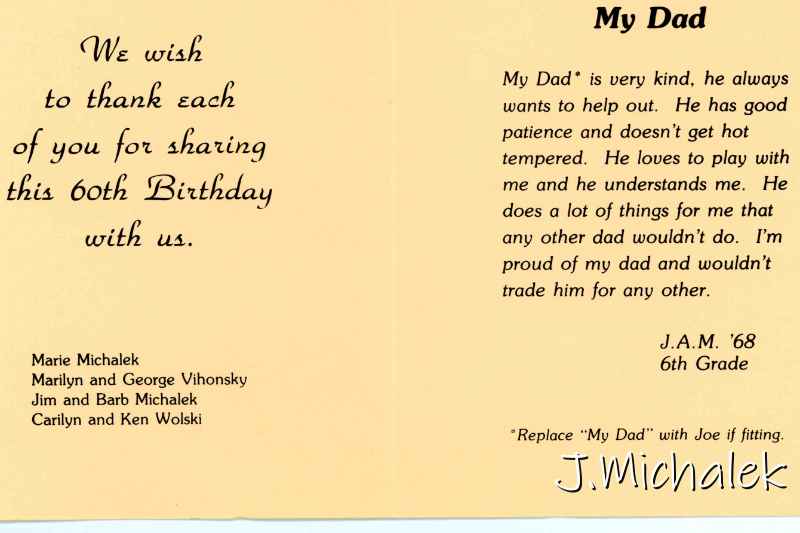 We wish
to thank each
of you for sharing
this 60th Birthday
with us.
Marie Michalek
Marilyn and George Vihonsky
Jim and Barb Michalek
Carilyn and Ken Wolski
My Dad
My Dad* is very kind, he always
wants to help out. He has good
patience and doesn't get hot
tempered. He loves to play with
me and he understands me. He
does a lot of things for me that
any other dad wouldn't do. I'm
proud of my dad and wouldn't
trade him for any other.
J.A.M. '68
6th Grade
*Replace "My Dad" with Joe if fitting.
J.Michalek